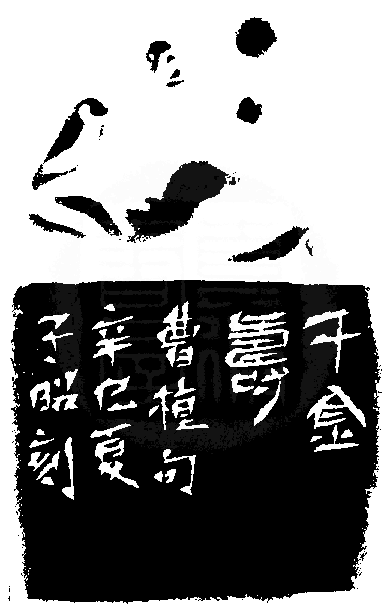 千金
壽
曹植句
辛巳夏
子昭刻